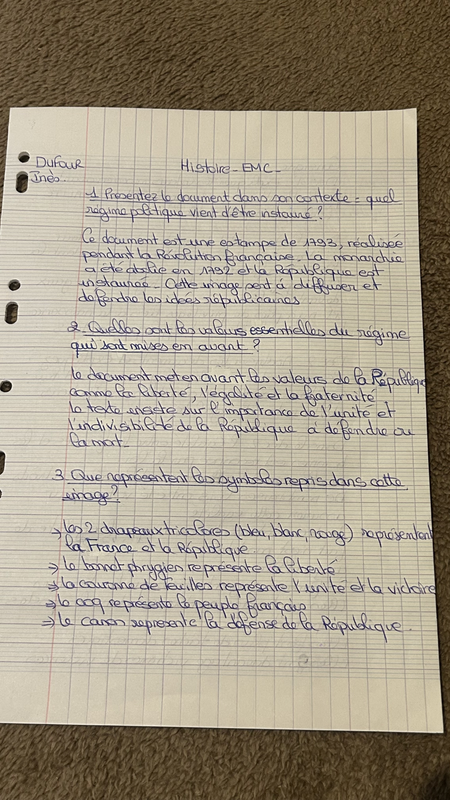 Dufour
Histoire - EMC -
Inès
1. Présentez le document dans son contexte = quel
régime politique vient d'être instauré ?
Ce document est une estampe de 1793, réalisée
pendant la Révolution française. La monarchie
a été abolie en 1792 et la République est
instaurée. Cette image sert à diffuser et
défendre les idées républicaines
2. Quelles sont les valeurs essentielles du régime
qui sont mises en avant ?
le document met en avant les valeurs de la République
comme la liberté, l'égalité et la fraternité
le texte insiste sur l'importance de l'unité et
l'indivisibilité de la République à défendre ou
la mort.
3. Que représentent les symboles repris dans cette
image ?
→ les 2 drapeaux tricolores (bleu, blanc, rouge) représentent
la France et la République
→ le bonnet phrygien représente la liberté
→ la couronne de feuilles représente l'unité et la victoire
→ le coq représente le peuple français
→ le canon représente la défense de la République.